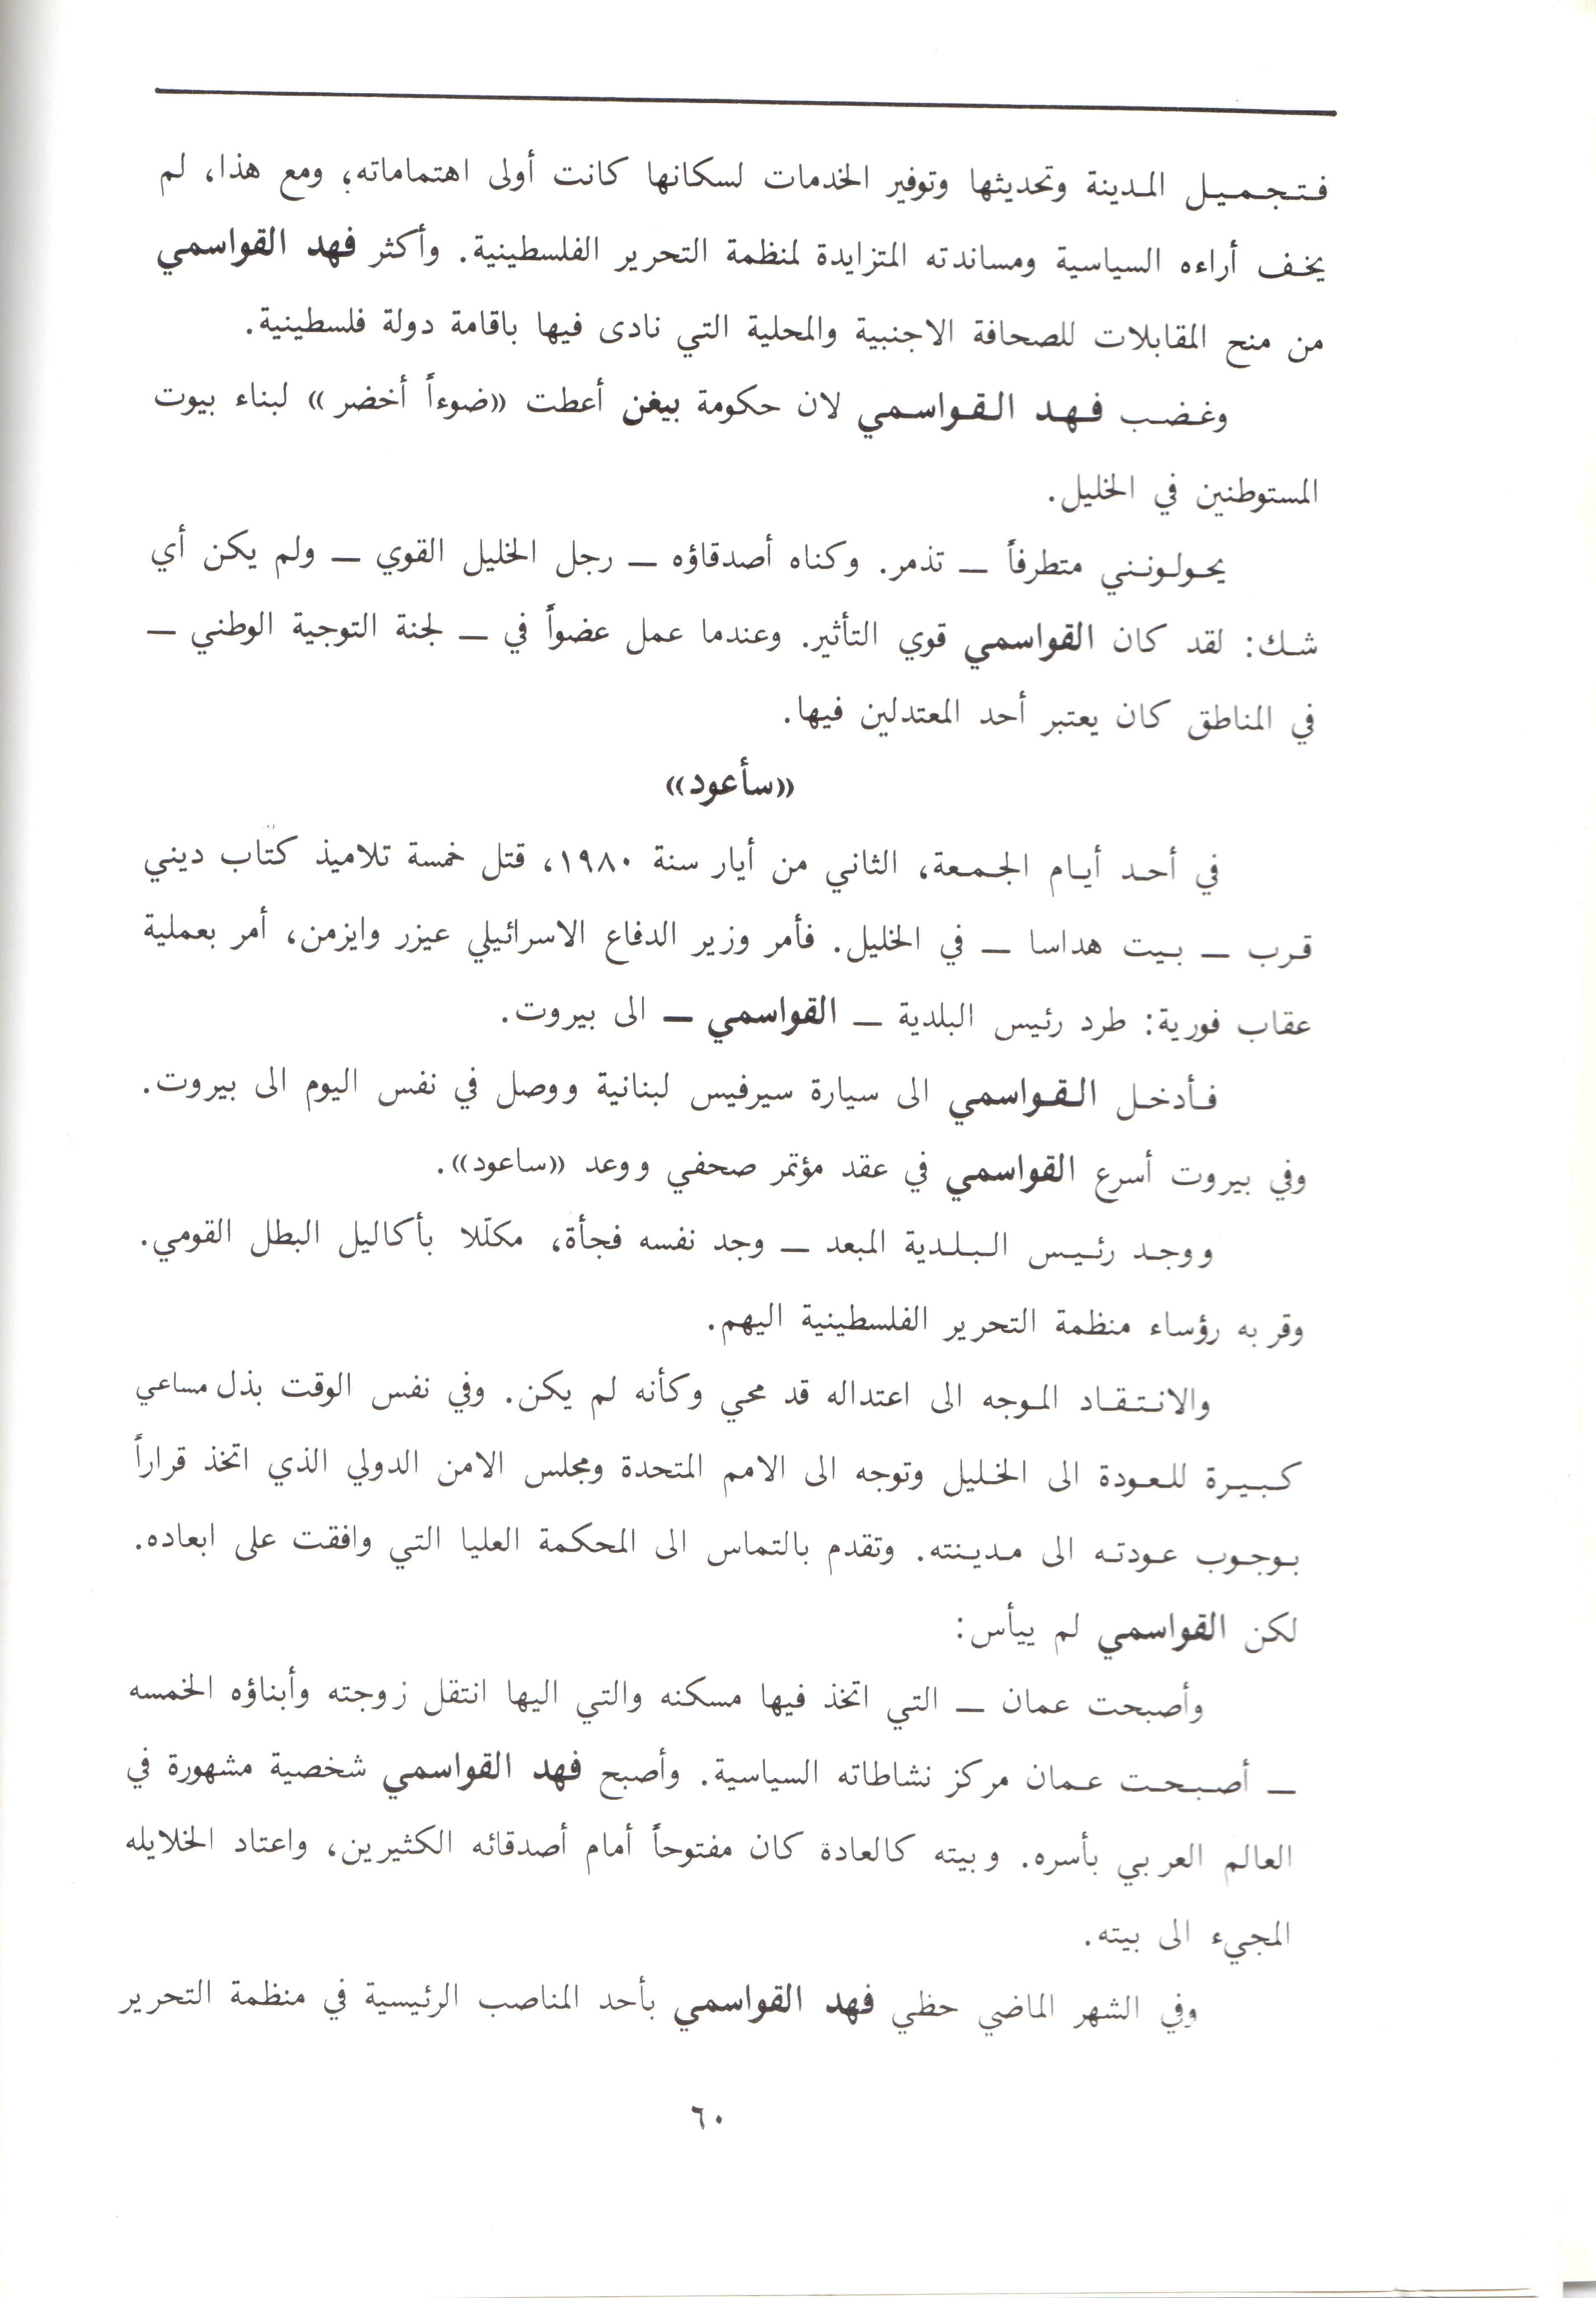 فتجميل المدينة وتحديثها وتوفير الخدمات لسكانها كانت أولى اهتماماته؛ ومع هذا، لم
يخف أراءه السياسية ومساندته المتزايدة لمنظمة التحرير الفلسطينية. وأكثر فهد القواسمي
من منح المقابلات للصحافة الاجنبية والمحلية التي نادى فيها باقامة دولة فلسطينية.
وغضب فهد القواسمي لان حكومة بيغن أعطت «ضوءاً أخضر» لبناء بيوت
المستوطنين في الخليل.
يحولونني متطرفاً — تذمر. وكناه أصدقاؤه — رجل الخليل القوي — ولم يكن أي
شك: لقد كان القواسمي قوي التأثير. وعندما عمل عضواً في — لجنة التوجية الوطني —
في المناطق كان يعتبر أحد المعتدلين فيها.
«سأعود»
في أحد أيام الجمعة، الثاني من أيار سنة ١٩٨٠، قتل خمسة تلاميذ كتاب ديني
قرب — بيت هداسا — في الخليل. فأمر وزير الدفاع الاسرائيلي عيزر وايزمن، أمر بعملية
عقاب فورية: طرد رئيس البلدية — القواسمي — الى بيروت.
فأدخل القواسمي الى سيارة سيرفيس لبنانية ووصل في نفس اليوم الى بيروت.
وفي بيروت أسرع القواسمي في عقد مؤتمر صحفي ووعد «ساعود».
ووجد رئيس البلدية المبعد — وجد نفسه فجأة، مكلّلا بأكاليل البطل القومي.
وقربه رؤساء منظمة التحرير الفلسطينية اليهم.
والانتقاد الموجه الى اعتداله قد محي وكأنه لم يكن. وفي نفس الوقت بذل مساعي
كبيرة للعودة الى الخليل وتوجه الى الامم المتحدة ومجلس الامن الدولي الذي اتخذ قراراً
بوجوب عودته الى مدينته. وتقدم بالتماس الى المحكمة العليا التي وافقت على ابعاده.
لكن القواسمي لم ييأس:
وأصبحت عمان — التي اتخذ فيها مسكنه والتي اليها انتقل زوجته وأبناؤه الخمسه
— أصبحت عمان مركز نشاطاته السياسية. وأصبح فهد القواسمي شخصية مشهورة في
العالم العربي بأسره. وبيته كالعادة كان مفتوحاً أمام أصدقائه الكثيرين، واعتاد الخلايله
المجيء الى بيته.
وفي الشهر الماضي حظي فهد القواسمي بأحد المناصب الرئيسية في منظمة التحرير
٦٠